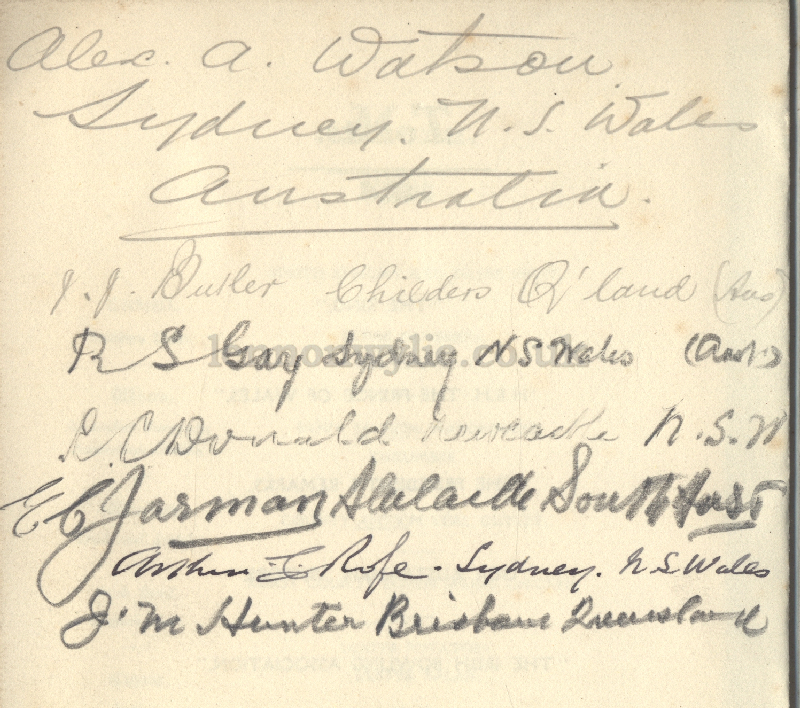 Alex. A. Watson
Sydney. N. S. Wales
Australia.
J. J. Butler Childers Q'land (Aus)
R S Gay Sydney N S Wales (Aust.)
Donald Newcastle N. S. W
E C Jarman Adelaide South Aust
Arthur Rofe. Sydney. N.S Wales
J. M Hunter Brisbane Queensland